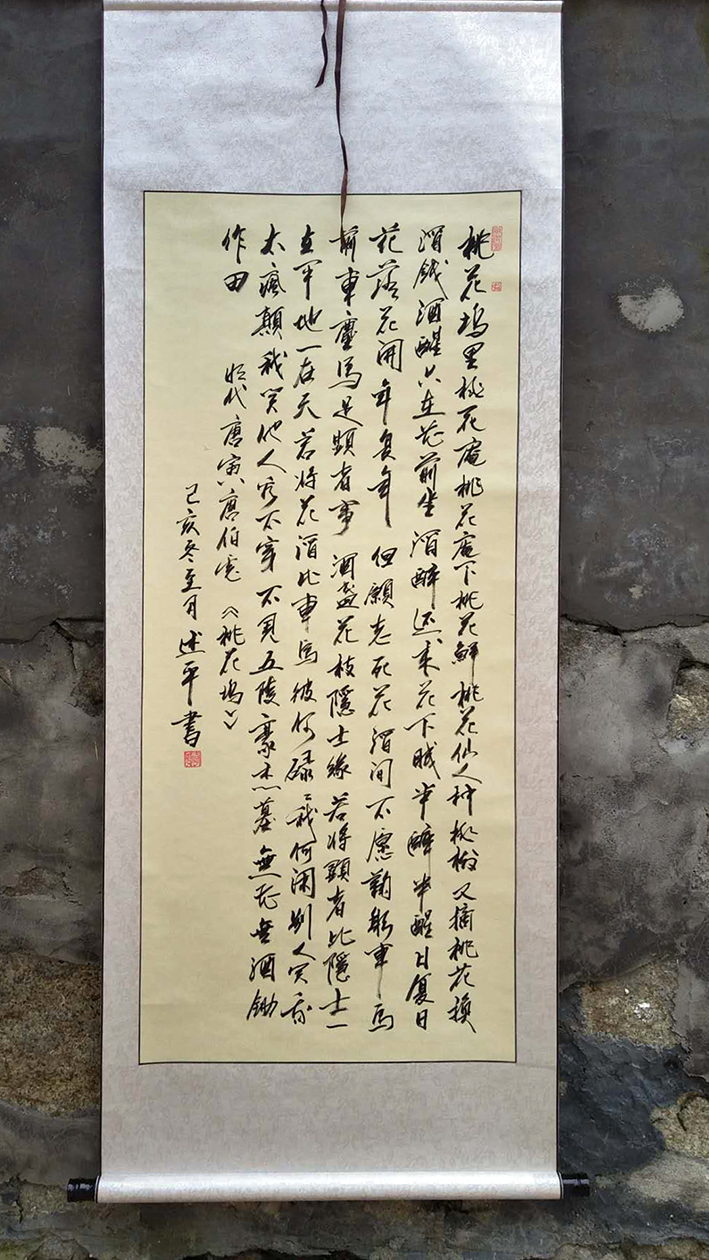 桃花塢里桃花庵桃花庵下桃花鮮桃花仙人种桃樹又摘桃花換
酒錢酒醒只在花前坐酒醉还来花下眠半醉半醒日复日
花落花開年复年但願老死花酒间不愿鞠躬車馬
前車塵馬足顯者事酒盏花枝隱士緣若將顯者比隱士一
在平地一在天若将花酒比車馬彼何碌々我何闲别人笑我
太瘋顛我笑他人看不穿不見五陵豪杰墓無花無酒鋤
作田
明代唐寅唐伯虎《桃花塢》
己亥冬至月述平書